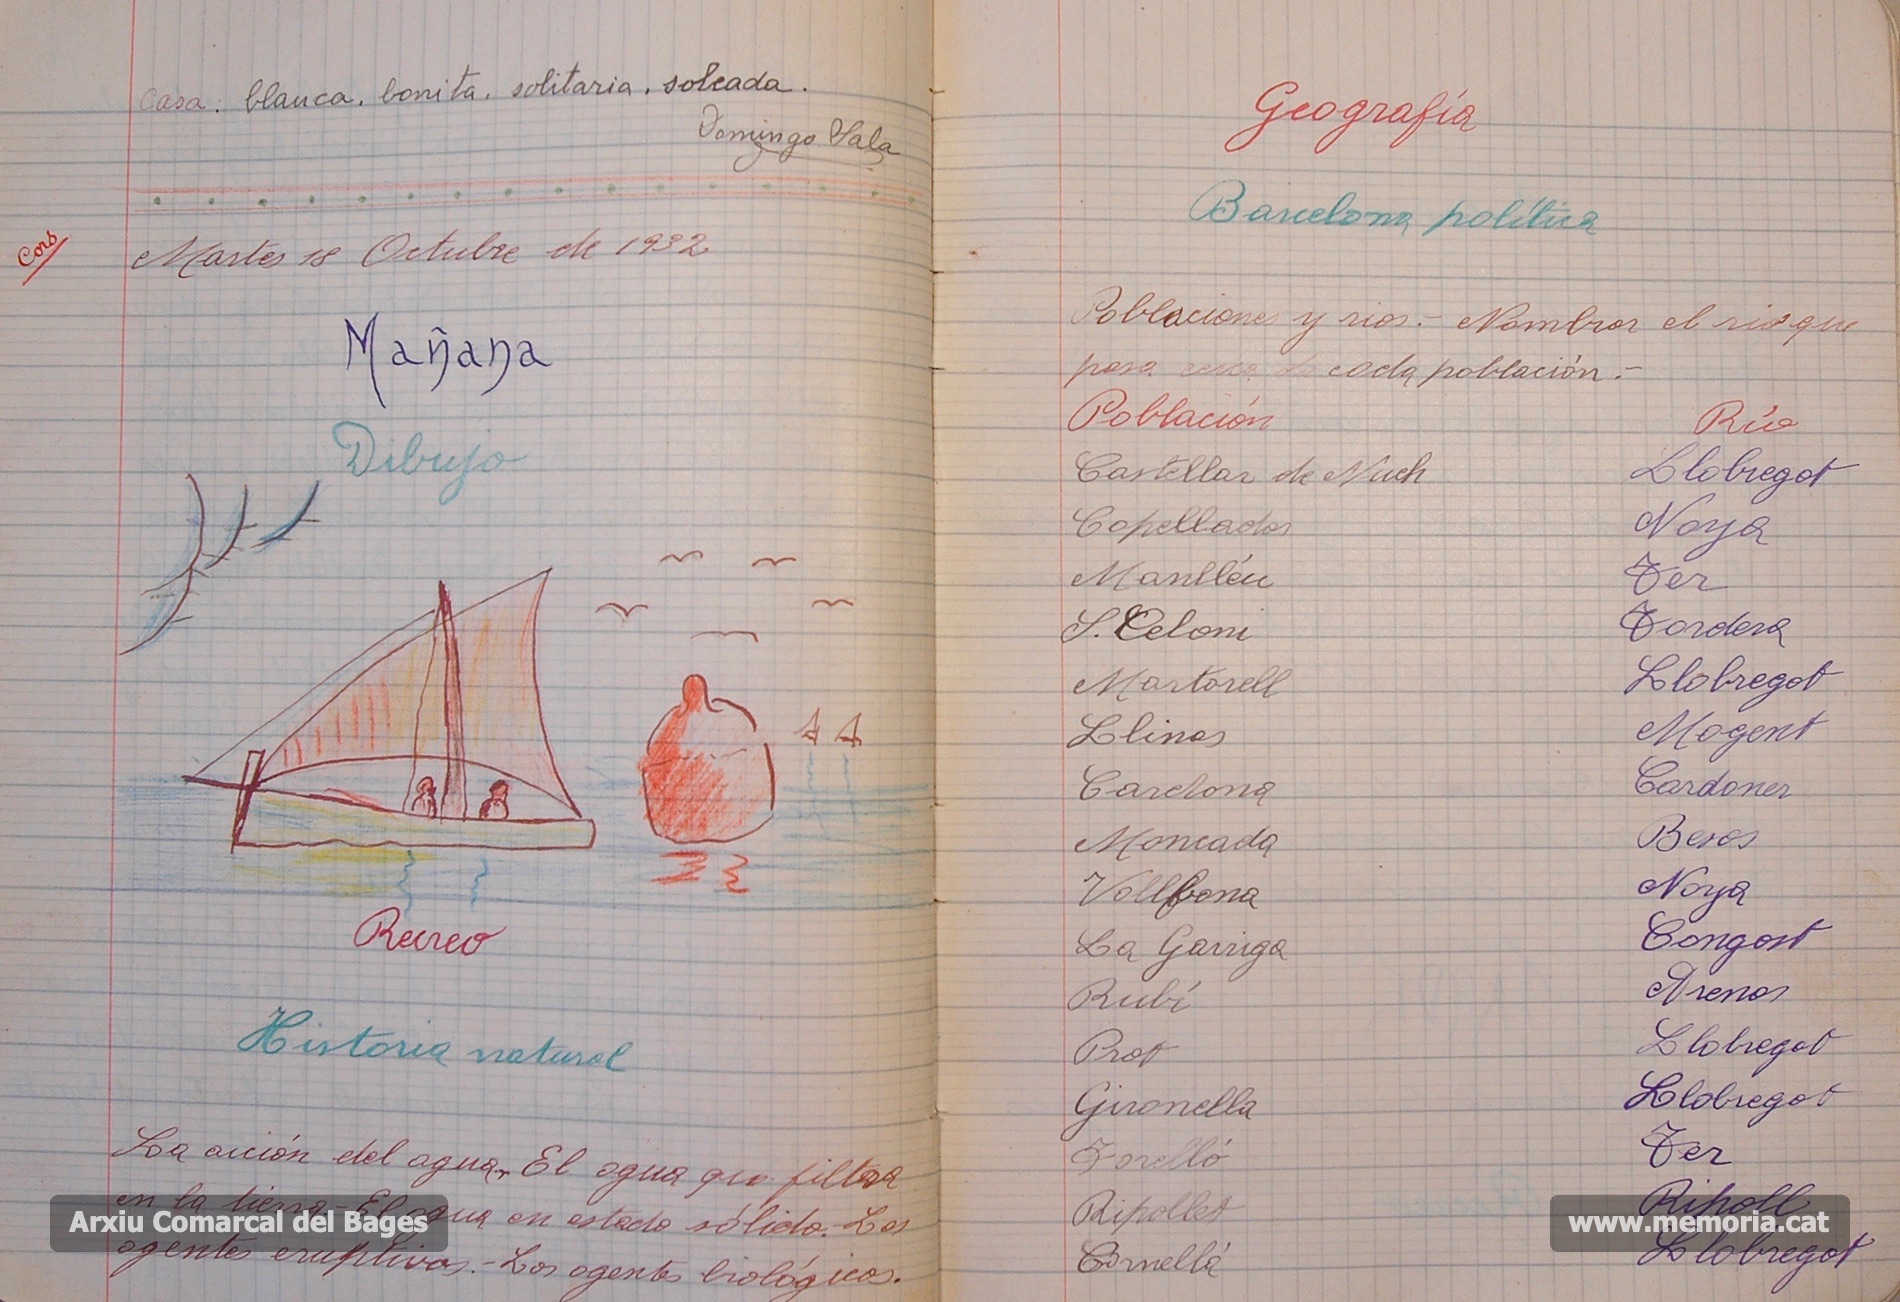 Casa: blanca, bonita, solitaria, soleada.
Domingo Sala
Cors
Martes 18 Octubre de 1932
Mañana
Dibujo
Recreo
Historia natural
La acción del agua.- El agua que filtra
en la tierra.- El agua en estado sólido.- Los
agentes eruptivos.- Los agentes biológicos.
Arxiu Comarcal del Bages
Geografía
Barcelona política
Poblaciones y rios.- Nombrar el rio que
pasa cerca de cada población.-
Población Río
Castellar de Nuch Llobregat
Capellades Noya
Manlléu Ter
S. Celoni Tordera
Martorell Llobregat
Llinas Mogent
Cardona Cardoner
Moncada Besos
Vallbona Noya
La Garriga Congost
Rubí Arenas
Prat Llobregat
Gironella Llobregat
Torelló Ter
Ripollet Ripoll
Cornellá Llobregat
www.memoria.cat